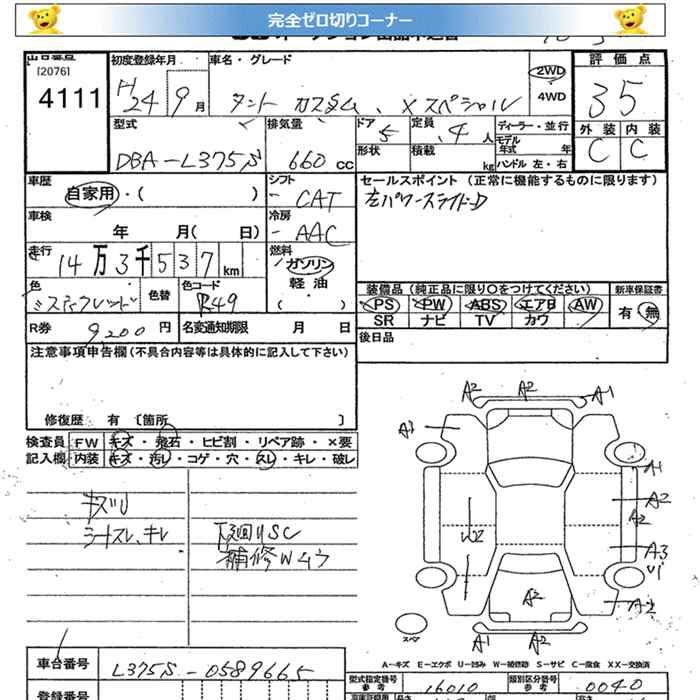 完全ゼロ切りコーナー
[2076]
4111
初度登録年月
H24 9月
車名・グレード
タント カスタム、Xスペシャル
2WD
4WD
評価点
35
外装 内装
C C
型式
DBA-L375S
排気量
660 cc
ドア 5
形状
定員 4人
積載 kg
ディーラー・並行
モデル年式 年
ハンドル 左・右
車歴
自家用・( )
シフト
CAT
セールスポイント (正常に機能するものに限ります)
左パワースライドD
車検
年 月( 日)
冷房
AAC
走行
14万3千537km
燃料
ガソリン
軽油
( )
色
ミスティックレッド
色替
色コード
R49
装備品 (純正品に限り○をつけてください)
新車保証書
PS PW ABS エアB AW
有 無
SR ナビ TV カワ
R券 9,200円
名変通知期限 月 日
後日品
注意事項申告欄(不具合内容等は具体的に記入して下さい)
修復歴 有 〔箇所 〕
検査員 FW キズ・飛石・ヒビ割・リペア跡・×要
記入欄 内装 キズ・汚レ・コゲ・穴・スレ・キレ・破レ
キズU
シートスレ、キレ
下廻りSC
補修Wムラ
A2 A2 A1
A3
A1
A2
A2
W2
A3
U1
A2
A2
A1 A2
スペア
A-キズ E-エクボ U-凹み W-補修跡 S-サビ C-腐食 XX-交換済
車台番号
L375S-0589665
型式指定番号 参考
16010
類別区分番号 参考
0040
登録番号